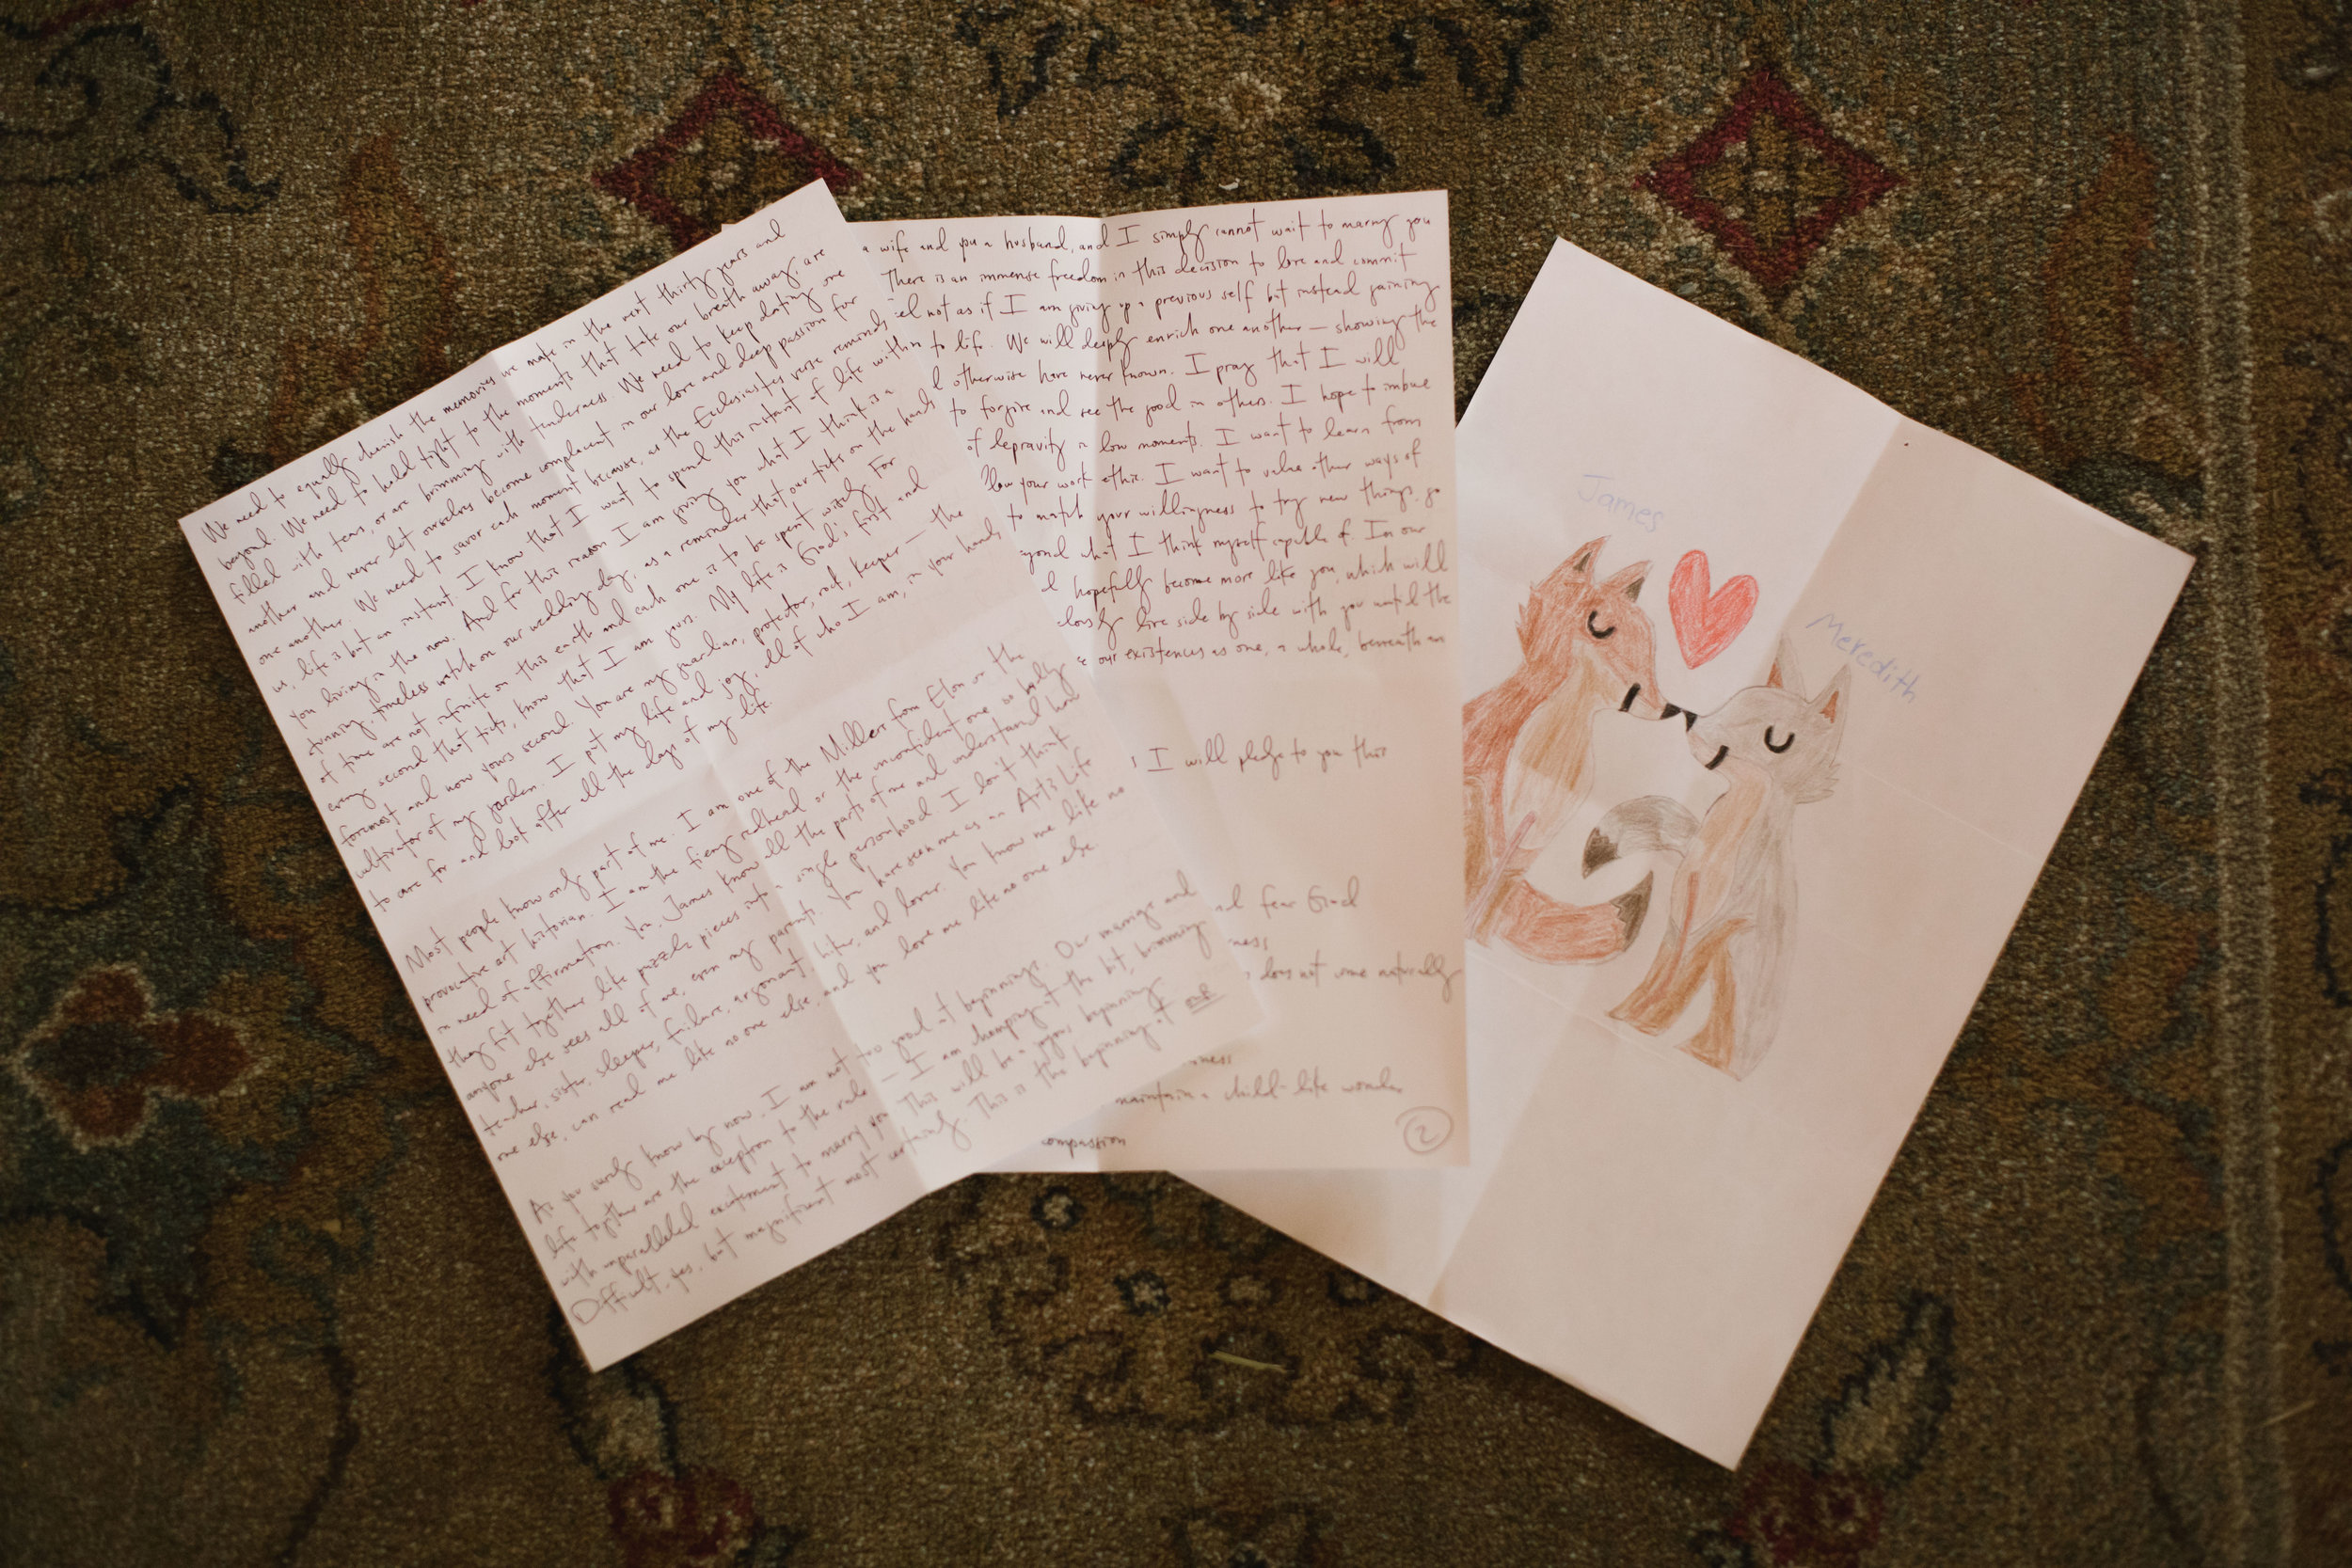 We need to equally cherish the memories we make in the next thirty years and
beyond. We need to hold tight to the moments that take our breath away, are
filled with tears, or are brimming with tenderness. We need to keep dating one
another and never let ourselves become complacent in our love and deep passion for
one another. We need to savor each moment because, as the Ecclesiastes verse reminds
us, life is but an instant. I know that I want to spend this instant of life with
you living in the now. And for this reason I am giving you what I think is a
stunning, timeless watch on our wedding day, as a reminder that our ticks on the hands
of time are not infinite on this earth and each one is to be spent wisely. For
every second that ticks, know that I am yours. My life is God's first and
foremost and now yours second. You are my guardian, protector, rock, keeper — the
cultivator of my garden. I put my life and joy, all of who I am, in your hands
to care for and look after all the days of my life.
Most people know only part of me. I am one of the Millers from Elon or the
provocative art historian. I am the fiery redhead or the unconfident one so badly
in need of affirmation. You, James know all the parts of me and understand how
they fit together like puzzle pieces into a single personhood. I don't think
anyone else sees all of me, even my parents. You have seen me as an Arts Life
teacher, sister, sleeper, failure, arguonaut, hiker, and lover. You know me like no
one else, can read me like no one else, and you love me like no one else.
As you surely know by now, I am not too good at beginnings. Our marriage and
life together are the exception to the rule — I am chomping at the bit, brimming
with unparalleled excitement to marry you. This will be a joyous beginning.
Difficult, yes, but magnificent most certainly. This is the beginning of our
a wife and you a husband, and I simply cannot wait to marry you
There is an immense freedom in this decision to love and commit
not as if I am giving up a previous self but instead gaining
to life. We will deeply enrich one another — showing the
otherwise have never known. I pray that I will
to forgive and see the good in others. I hope to imbue
of depravity in low moments. I want to learn from
your work ethic. I want to value other ways of
to match your willingness to try new things, go
what I think myself capable of. In our
I hopefully become more like you, which will
live side by side with you until the
our existences as one, a whole, beneath an
I will pledge to you this
and fear God
does not come naturally
maintain a child-like wonder
compassion
2
James
Meredith